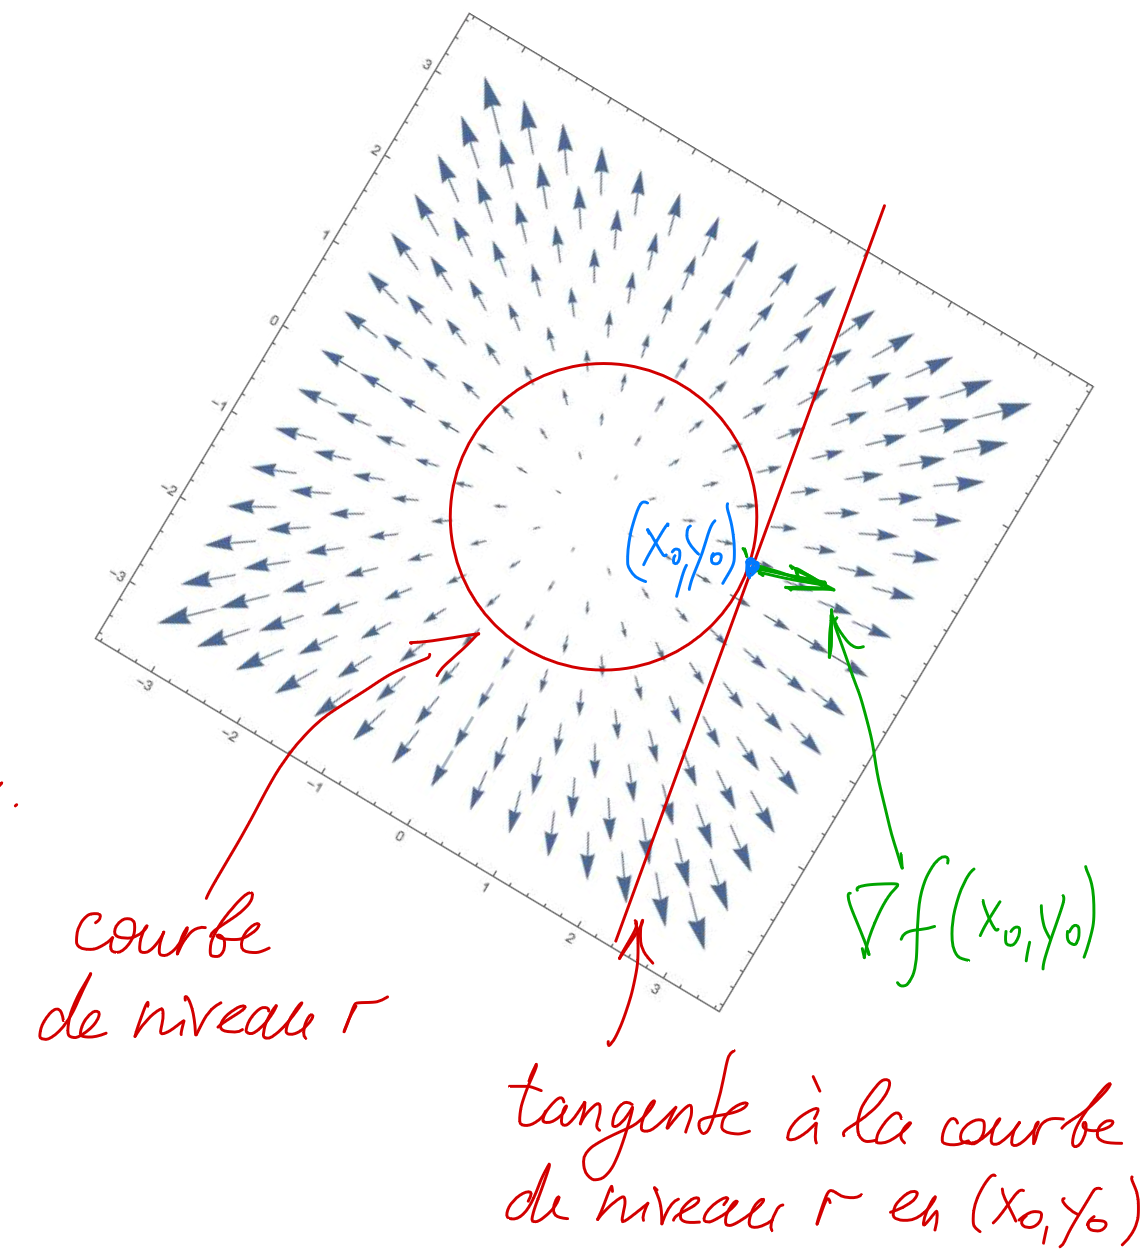 3
2
1
0
-1
-2
-3
-3
-2
-1
0
1
2
3
(x₀,y₀)
∇f(x₀,y₀)
courbe
de niveau r
tangente à la courbe
de niveau r en (x₀,y₀)